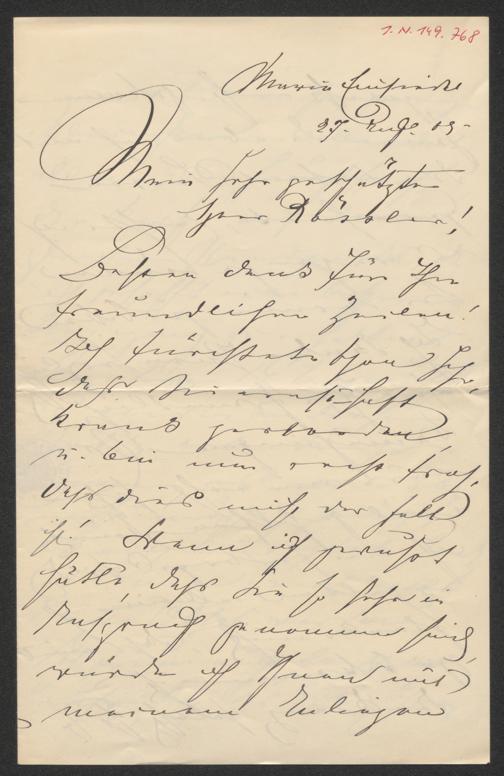 I.N. 149.768
Maria Einsiedel
27. Aug. 05
Mein sehr geschätzter
Herr Rössler!
Besten Dank für Ihre
freundlichen Zeilen!
Ich fürchtete schon sehr,
dass Sie ernsthaft
krank geworden
u. bin nun recht froh,
dass dies nicht der Fall
ist! Wenn ich gewusst
hätte, dass Sie so sehr in
Anspruch genommen sind,
würde ich Ihnen mit
meinem Anliegen